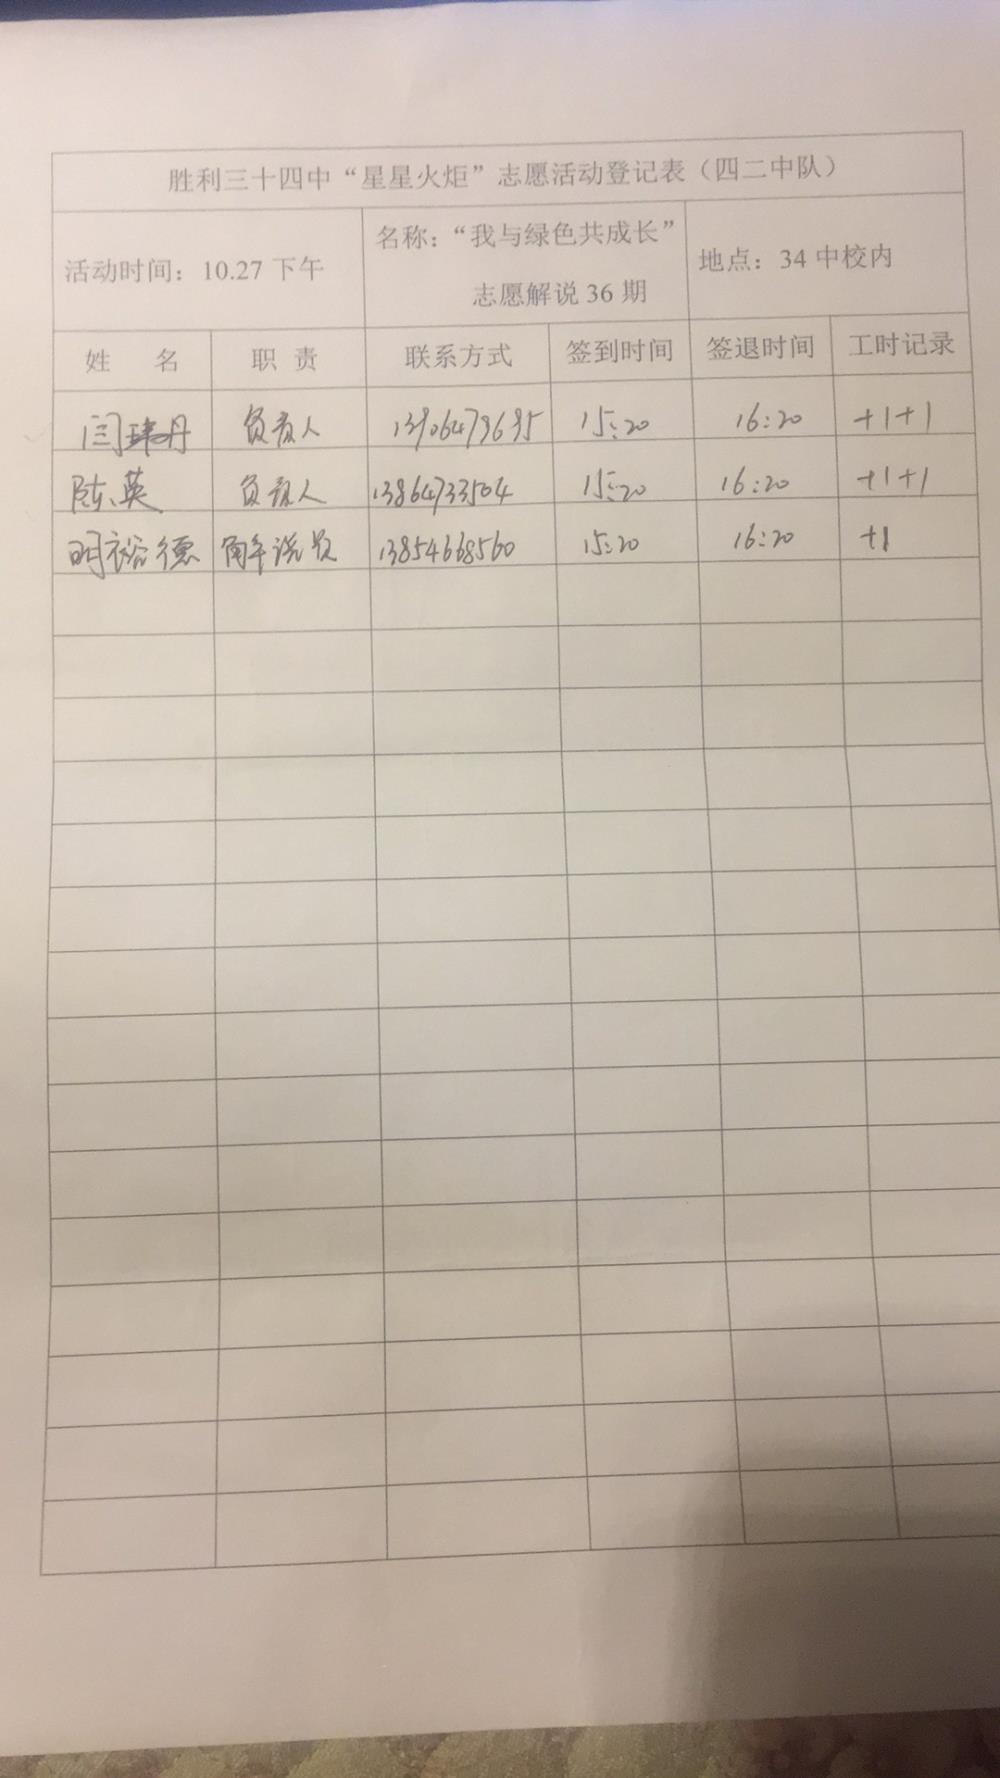 胜利三十四中“星星火炬”志愿活动登记表（四二中队）
活动时间：10.27 下午 名称：“我与绿色共成长” 志愿解说 36 期 地点：34 中校内
姓 名 职 责 联系方式 签到时间 签退时间 工时记录
闫玮丹 负责人 13906479635 15:20 16:20 +1+1
陈英 负责人 13864733504 15:20 16:20 +1+1
明裕德 解说员 13854668560 15:20 16:20 +1